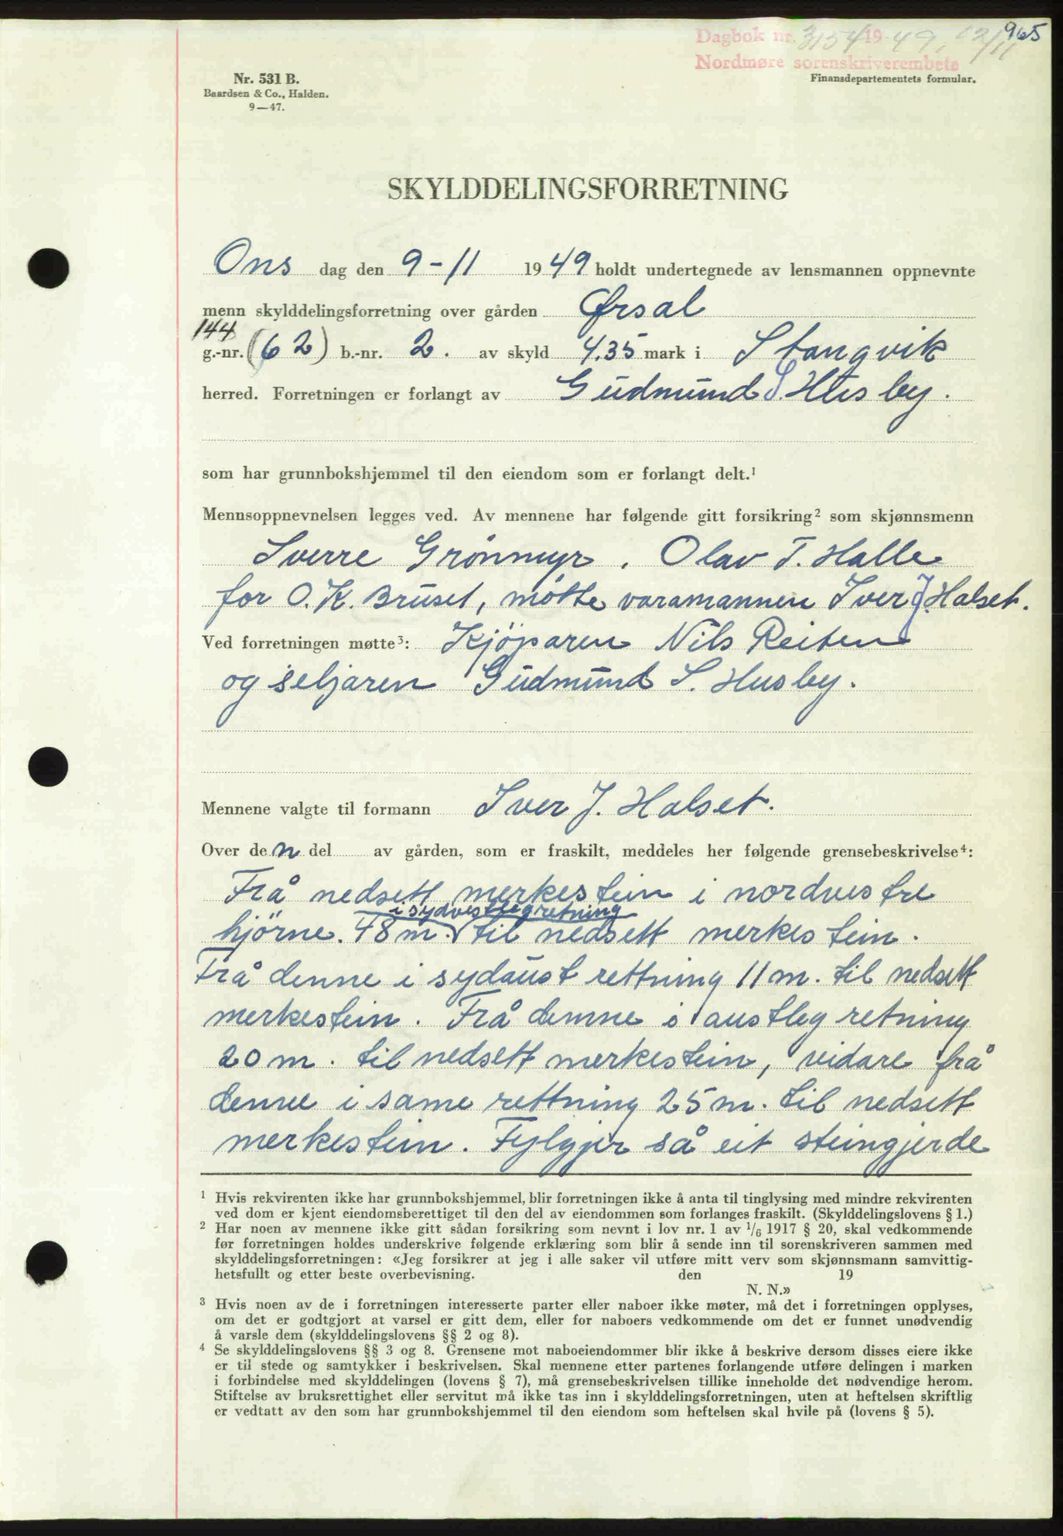 965
Dagbok nr. 3154 19 49, 12/11
Nordmøre sorenskriverembete
Nr. 531 B.
Baardsen & Co., Halden.
9—47.
Finansdepartementets formular.
SKYLDDELINGSFORRETNING
Ons dag den 9-11 1949 holdt undertegnede av lensmannen oppnevnte
menn skylddelingsforretning over gården Ørsal
144
g.-nr. (62) b.-nr. 2. av skyld 4.35 mark i Stangvik
herred. Forretningen er forlangt av Gudmund S. Husby.
som har grunnbokshjemmel til den eiendom som er forlangt delt.¹
Mennsoppnevnelsen legges ved. Av mennene har følgende gitt forsikring² som skjønnsmenn
Sverre Grönmyr, Olav T. Halle
for O.K. Bruset, møtte varamannen Iver J. Halset.
Ved forretningen møtte³: Kjöparen Nils Reiten
og seljaren Gudmund S. Husby.
Mennene valgte til formann Iver J. Halset.
Over den del av gården, som er fraskilt, meddeles her følgende grensebeskrivelse⁴:
Frå nedsett merkestein i nordvestre
i sydvestleg retning
hjörne. 48 m. til nedsett merkestein.
Frå denne i sydaust rettning 11 m. til nedsett
merkestein. Frå denne i austleg retning
20 m. til nedsett merkestein, vidare frå
denne i same rettning 25 m. til nedsett
merkestein. Fylgjer så eit steingjerde
¹ Hvis rekvirenten ikke har grunnbokshjemmel, blir forretningen ikke å anta til tinglysing med mindre rekvirenten
ved dom er kjent eiendomsberettiget til den del av eiendommen som forlanges fraskilt. (Skylddelingslovens § 1.)
² Har noen av mennene ikke gitt sådan forsikring som nevnt i lov nr. 1 av 1/6 1917 § 20, skal vedkommende
før forretningen holdes underskrive følgende erklæring som blir å sende inn til sorenskriveren sammen med
skylddelingsforretningen: «Jeg forsikrer at jeg i alle saker vil utføre mitt verv som skjønnsmann samvittig-
hetsfullt og etter beste overbevisning. den 19
N. N.»
³ Hvis noen av de i forretningen interesserte parter eller naboer ikke møter, må det i forretningen opplyses,
om det er godtgjort at varsel er gitt dem, eller for naboers vedkommende om det er funnet unødvendig
å varsle dem (skylddelingslovens §§ 2 og 8).
⁴ Se skylddelingslovens §§ 3 og 8. Grensene mot naboeiendommer blir ikke å beskrive dersom disses eiere ikke
er til stede og samtykker i beskrivelsen. Skal mennene etter partenes forlangende utføre delingen i marken
i forbindelse med skylddelingen (lovens § 7), må grensebeskrivelsen tillike inneholde det nødvendige herom.
Stiftelse av bruksrettighet eller servitut må ikke tas inn i skylddelingsforretningen, uten at heftelsen skriftlig
er vedtatt av den som har grunnbokshjemmel til den eiendom som heftelsen skal hvile på (lovens § 5).